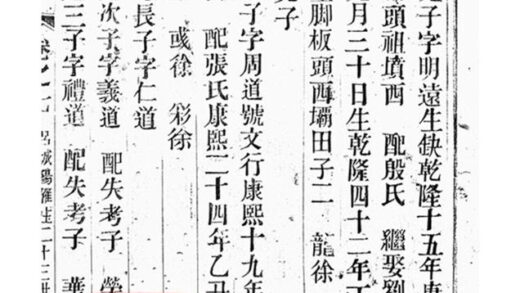 子字明遠生缺乾隆十五年庚
頭祖墳西 配殷氏 繼娶劉
月三十日生乾隆四十二年丁
脚板頭西壩田子二 龍徐
子
子字周道號文行康熙十九年
配張氏康熙二十四年乙丑
彧徐 彩徐
長子字仁道
次子字義道 配失考子 榮
三子字禮道 配失考子 華
二十三世